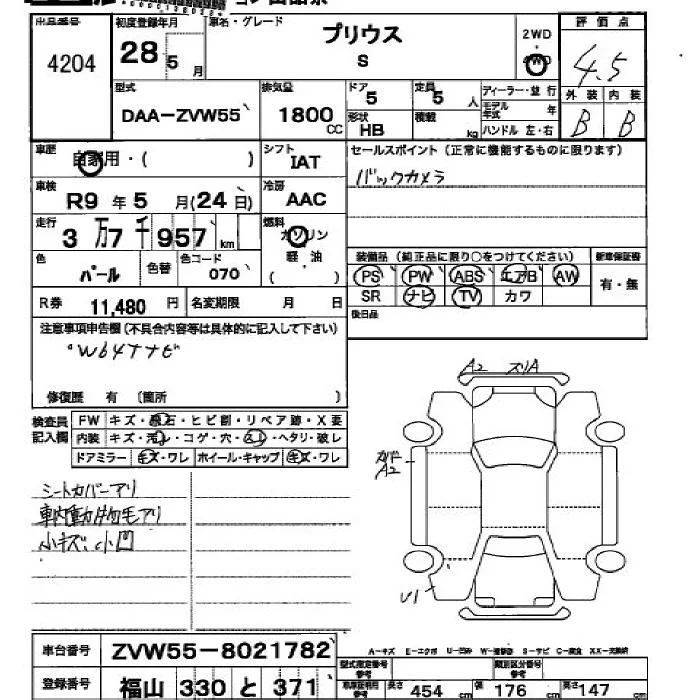 出品番号 初度登録年月 車名・グレード 2WD 評価点
4204 28 5 月 プリウス S 4WD 4.5
型式 排気量 ドア 定員 ディーラー・並行 外装 内装
DAA-ZVW55 1800 CC 5 5 人 モデル年式 年 B B
形状 HB 積載 kg ハンドル 左・右
車歴 自家用・( ) シフト IAT セールスポイント (正常に機能するものに限ります)
車検 R9 年 5 月(24 日) 冷房 AAC バックカメラ
走行 3 万 7 千 957 km 燃料 ガソリン 軽油 ( )
色 パール 色替 色コード 070 装備品 (純正品に限り○をつけてください) 新車保証書
PS PW ABS エアB AW 有・無
R券 11,480 円 名変期限 月 日 SR ナビ TV カワ
注意事項申告欄(不具合内容等は具体的に記入して下さい) 後日品
W64ナナビ
修復歴 有 〔箇所 〕
A2 スリA
検査員記入欄 FW キズ・飛石・ヒビ割・リペア跡・X要
内装 キズ・汚レ・コゲ・穴・スレ・ヘタリ・破レ
ドアミラー キズ・ワレ ホイール・キャップ キズ・ワレ
A2
シートカバーアリ
車内動物毛アリ
小キズ、小凹
U1
車台番号 ZVW55-8021782 A-キズ E-エクボ U-凹み W-補修跡 S-サビ C-腐食 XX-交換済
登録番号 福山 330 と 371 型式指定番号 類別区分番号
長さ 454 cm 幅 176 cm 高さ 147 cm